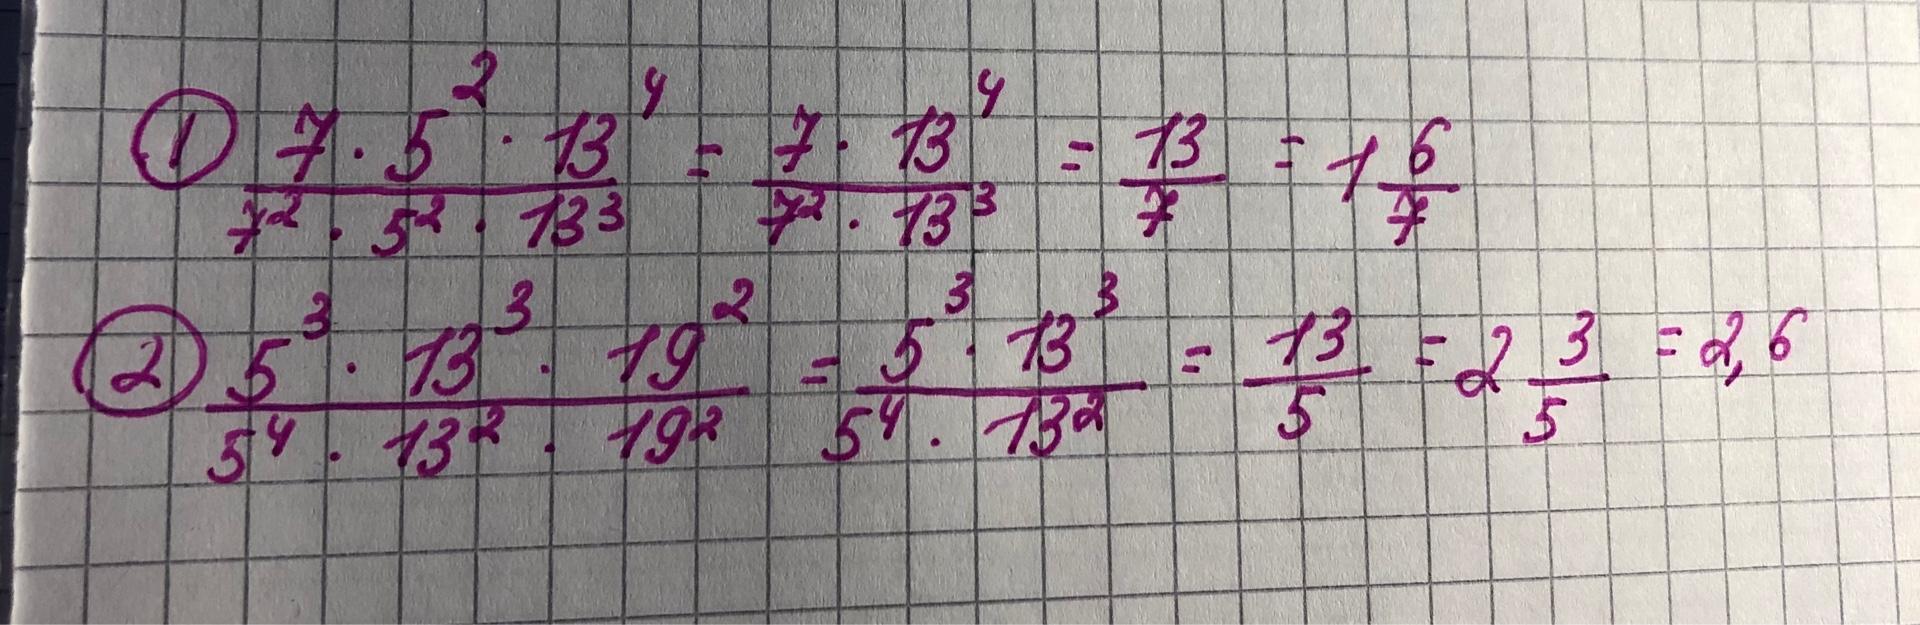 ① (7 · 5² · 13⁴)/(7² · 5² · 13³) = (7 · 13⁴)/(7² · 13³) = 13/7 = 1 6/7
② (5³ · 13³ · 19²)/(5⁴ · 13² · 19²) = (5³ · 13³)/(5⁴ · 13²) = 13/5 = 2 3/5 = 2,6